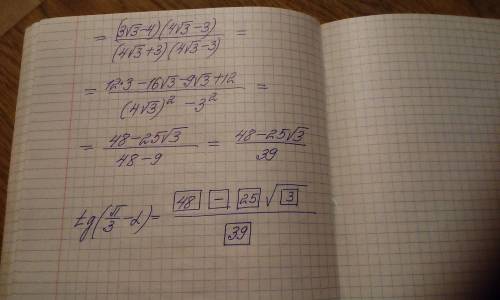 = (3√3-4)(4√3-3) / (4√3+3)(4√3-3) =
= 12·3-16√3-9√3+12 / (4√3)² - 3² =
= 48-25√3 / 48-9 = 48-25√3 / 39
tg(π/3 - α) = 48 - 25 √3 / 39